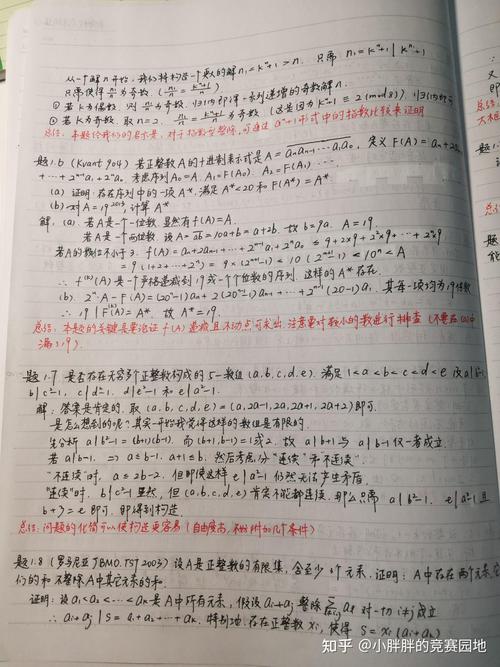 从一个解n开始,我们将构造一个更大的解 n₁ = kⁿ+1 > n. 只需 n₁ = kⁿ+1 | kⁿ¹+1
只需使得 n₁/n 为奇数 (n₁/n = (kⁿ+1)/n)
① 若k为偶数, 则 n₁/n 为奇数, 归纳即得一系列递增的奇数解n.
② 若k为奇数, 取n=2. (kⁿ+1)/n 为奇数 (这是因为 kⁿ+1 ≡ 2 (mod 8)), 归纳即可
总结: 本题给我们的启示是, 对于指数型整除, 可通过 aⁿ+1 形式中的指数比较来证明
题1.6 (Kvant 904) 若正整数A的十进制表示式是 A = aₙaₙ₋₁…a₁a₀, 定义 F(A) = aₙ + 2aₙ₋₁
+ … + 2ⁿ⁻¹a₁ + 2ⁿa₀. 考虑序列 A₀=A. A₁=F(A₀). A₂=F(A₁)…
(a) 证明: 存在序列中的一项A*, 满足 A*<20 和 F(A*)=A*.
(b) 对 A=19²⁰¹³, 计算A*
解: (a) 若A是一个一位数, 显然有 f(A)=A.
若A是一个两位数, 设 A=ab=10a+b=a+2b. 故 b=9a. A=19.
若A的数位不小于3. f(A) = aₙ+2aₙ₋₁+…+2ⁿ⁻¹a₁+2ⁿa₀ ≤ 9+2×9+2²×9+…+2ⁿ×9
= 9(1+2+…+2ⁿ) = 9×(2ⁿ⁺¹-1) < 10(2ⁿ⁺¹-1) < 10ⁿ < A
∴ f⁽ᵏ⁾(A) 是一个严格递减到19或一个个位数的序列. 这样的A*存在.
(b). 2ⁿ·A-F(A) = (20ⁿ-1)aₙ + 2(20ⁿ⁻¹-1)aₙ₋₁ + … + 2ⁿ⁻¹(20-1)a₁. 其每一项均为19倍数
∴ 19 | F(A) = A*. 故 A*=19.
总结: 本题的关键是要论证 f(A) 递减且不动点可求出, 注意要对较小的数进行排查 (不要在(a)中
漏了19).
题1.7 是否存在无穷多个正整数构成的5-数组(a,b,c,d,e). 满足 1<a<b<c<d<e 及 a|b²-1,
b|c²-1, c|d²-1, d|e²-1 和 e|a²-1.
解: 答案是肯定的. 取 (a,b,c,d,e) = (a,2a-1,2a,2a+1,2a+2) 即可.
是怎么想到的呢? 其实一开始我觉得这样的数组是有限的.
先分析 a|b²-1 = (b+1)(b-1). 而 (b+1,b-1)=1或2. 故 a|b+1 与 a|b-1 仅一者成立
若 a|b-1. ⇒ a≤b-1. a+1≤b. 然后考虑分“连续”和“不连续”.
“不连续”时, a≤2b-2. 但即使这样 e|a²-1 仍然无法产生矛盾.
“连续”时, b|c²-1 显然, 但 (a,b,c,d,e) 肯定不能都连续. 那么只需 a|b²-1. e|a²-1 且
b+3=e 即可. 即得到构造.
总结: 问题的化简可以使构造更容易 (自由度高, 不妨附加几个条件)
题1.8 (罗马尼亚JBMO.TST2003) 设A是正整数的有限集, 含至少 个元素. 证明: A中存在两个元素, 它
们的和不整除A中其它元素的和.
证明: 设 a₁<a₂<…<aₖ 是A中所有元素, 假设 aᵢ+aⱼ 整除 Σaₜ 对一切 i≠j 成立
∴ aᵢ+aⱼ | S = a₁+a₂+…+aₖ. 特别地, 存在正整数xᵢ, 使得 S = xᵢ(aᵢ+aₖ)
知乎 @小胖胖的竞赛园地